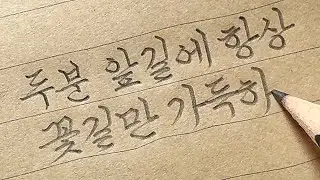 두분 앞길에 항상
꽃길만 가득하